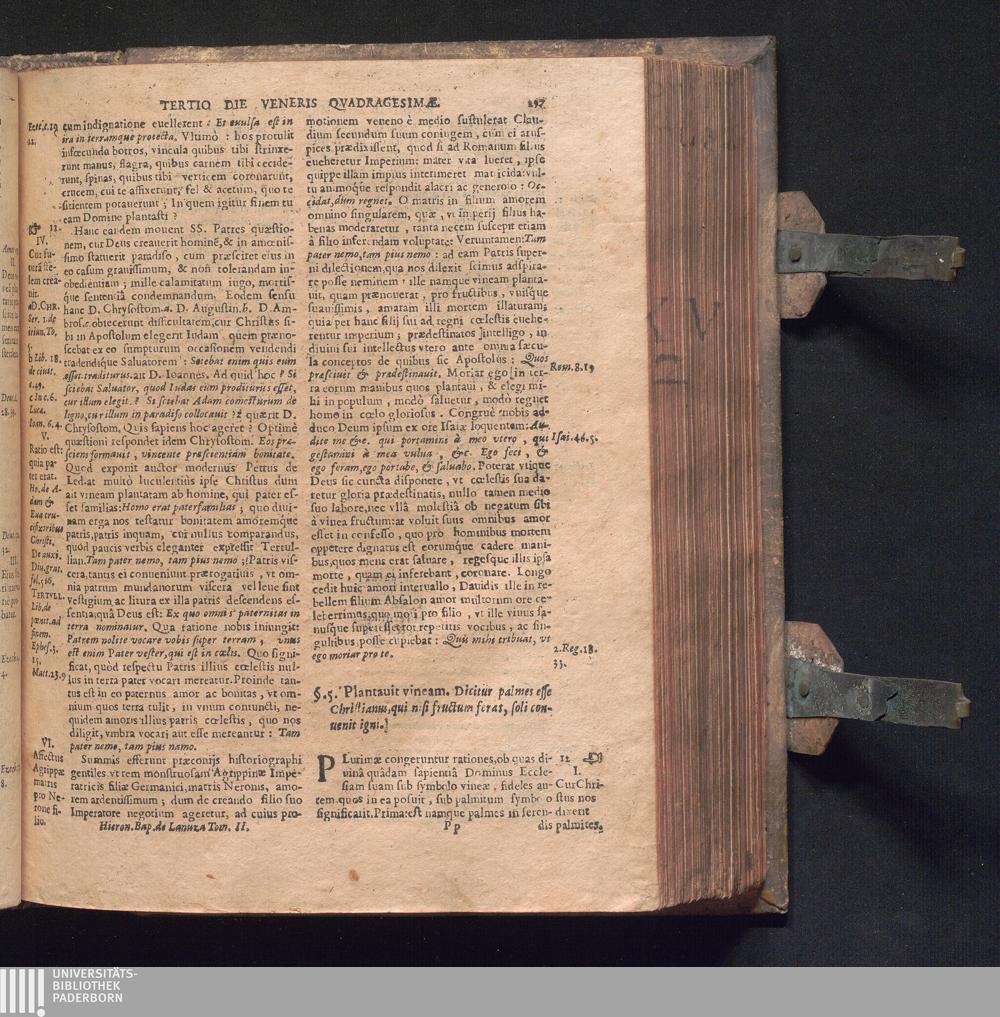 TERTIO DIE VENERIS QVADRAGESIMÆ. 297
cum indignatione euellerent: Et euulsa est in
ira in terramque proiecta. Vltimò: hos protulit
infœcunda botros, vincula quibus tibi strinxe-
runt manus, flagra, quibus carnem tibi cecide-
runt, spinas, quibus tibi verticem coronarunt,
crucem, cui te affixerunt, fel & acetum, quo te
sitientem potauerunt; In quem igitur finem tu
eam Domine plantasti?
Hanc eandem mouent SS. Patres quæstio-
nem, cur Deus creauerit hominē, & in amœnis-
simo statuerit paradiso, cum præsciret eius in
eo casum grauissimum, & non tolerandam in-
obedientiam; mille calamitatum iugo, mortis-
que sententiâ condemnandum. Eodem sensu
hanc D. Chrysostom. a. D. Augustin. b. D. Am-
bros. c. obiecerunt difficultatem, cur Christus si-
bi in Apostolum elegerit Iudam quem præno-
scebat ex eo sumpturum occasionem vendendi
tradendique Saluatorem: Sciebat enim quis eum
esset traditurus. ait D. Ioannes. Ad quid hoc? Si
sciebat Saluator, quod Iudas eum proditurus esset,
cur illum elegit? Si sciebat Adam comesturum de
ligno, cur illum in paradiso collocauit? quærit D.
Chrysostom, Quis sapiens hoc ageret? Optimè
quæstioni respondet idem Chrysostom. Eos præ-
sciens formauit, vincente præscientiam bonitate.
Quod exponit auctor modernus Petrus de
Ledat multò luculentius ipse Christus dum
ait vineam plantatam ab homine, qui pater es-
set familias: Homo erat paterfamilias; quo diui-
nam erga nos testatur bonitatem amoremque
patris, patris inquam, cui nullus comparandus,
quod paucis verbis eleganter expressit Tertul-
lian. Tam pater nemo, tam pius nemo; Patris vis-
cera, tantis ei conueniunt prærogatiuis, vt om-
nia patrum mundanorum viscera vel leue sint
vestigium ac litura ex illa patris descendens es-
sentia; quâ Deus est: Ex quo omnis paternitas in
terra nominatur. Qua ratione nobis iniungit
Patrem nolite vocare vobis super terram, vnus
est enim Pater vester, qui est in cœlis. Quo signi-
ficat, quòd respectu Patris illius cœlestis nul-
lus in terra pater vocari mereatur. Proinde tan-
tus est in eo paternus amor ac bonitas, vt om-
nium quos terra tulit, in vnum coniuncti, ne-
quidem amoris illius patris cœlestis, quo nos
diligit, vmbra vocari aut esse mereantur: Tam
pater nemo, tam pius nemo.
Summis efferunt præconijs historiographi
gentiles vt rem monstruosam Agrippinæ Impe-
ratricis filiæ Germanici, matris Neronis, amo-
rem ardentissimum; dum de creando filio suo
Imperatore negotium ageretur, ad cuius pro-
Hieron. Bap. de Lanuza Tom. II.
Eccl. 19
12.
12.
IV.
Cur fu-
tura sce-
lem crea-
uit.
a D. CHR.
Ser. 1. de
b Lib. 18.
de ciuit.
c.49.
c In c. 6.
Luca.
Ioan. 6. 4.
V.
Ratio est:
quia pa-
ter erat.
Ho. de A-
dam &
Eua
Christi.
De auxi.
Diu. grat.
fol. 566.
TERTVLL.
Lib. de
pœnit. ad
finem.
Ephes. 3.
15.
Matt. 23. 9
VI.
Affectus
Agrippæ
matris
pro Ne-
rone fi-
lio.
motionem veneno è medio sustulerat Clau-
dium secundum suum coniugem, cùm ei arus-
pices prædixissent, quod si ad Romanum filius
eueheretur Imperium: mater vita lueret, ipse
quippe illam impius interimeret matricida: vul-
tu animoque respondit alacri ac generoso: Oc-
cidat, dum regnet. O matris in filium amorem
omnino singularem, quæ, vt imperij filius ha-
benas moderaretur, tanta necem suscepit etiam
à filio inferendam voluptate: Veruntamen: Tam
pater nemo, tam pius nemo: ad eam Patris super-
ni dilectionem, qua nos dilexit scimus adspira-
re posse neminem: ille namque vineam planta-
uit, quam prænouerat, pro fructibus, vuisque
suauissimis, amaram illi mortem illaturam;
quia per hanc filij sui ad regni cœlestis euehe-
rentur imperium; prædestinatos intelligo, in
diuini sui intellectus vtero ante omnia sæcu-
la conceptos de quibus sic Apostolus: Quos
præsciuit & prædestinauit. Moriar ego in ter-
ra eorum manibus quos plantaui, & elegi mi-
hi in populum, modò saluetur, modò regnet
homo in cœlo gloriosus. Congruè nobis ad-
duco Deum ipsum ex ore Isaiæ loquentem: Au-
dite me &c. qui portamini à meo vtero, qui
gestamini à mea vulua, &c. Ego feci, &
ego feram, ego portabo, & saluabo. Poterat vtique
Deus sic cuncta disponere, vt cœlestis sua da-
retur gloria prædestinatis, nullo tamen medio
suo labore, nec vllâ molestiâ ob negatum sibi
à vinea fructum: at voluit suus omnibus amor
esset in confesso, quo pro hominibus mortem
oppetere dignatus est eorumque cadere mani-
bus, quos mens erat saluare, regesque illis ipsa
morte, quam ei inferebant, coronare. Longo
cedit huic amori interuallo, Dauidis ille in re-
bellem filium Absalon amor multorum ore ce-
leberrimus, quo mori pro filio, vt ille viuus sa-
nusque superesset tot repetitis vocibus, ac sin-
gultibus posse cupiebat: Quis mihi tribuat, vt
ego moriar pro te.
§. 5. Plantauit vineam. Dicitur palmes esse
Christianus, qui nisi fructum ferat, soli con-
uenit igni.]
PLurimæ congeruntur rationes, ob quas di-
uinâ quâdam sapientiâ Dominus Eccle-
siam suam sub symbolo vineæ, fideles au-
tem quos in ea posuit, sub palmitum symbolo
significarit. Prima: est namque palmes in feren-
Pp dis palmites,
Rom. 8. 29
Isai. 46. 5.
2. Reg. 18.
33.
12
I.
Cur Chri-
stus nos
dixerit
UNIVERSITÄTS-
BIBLIOTHEK
PADERBORN